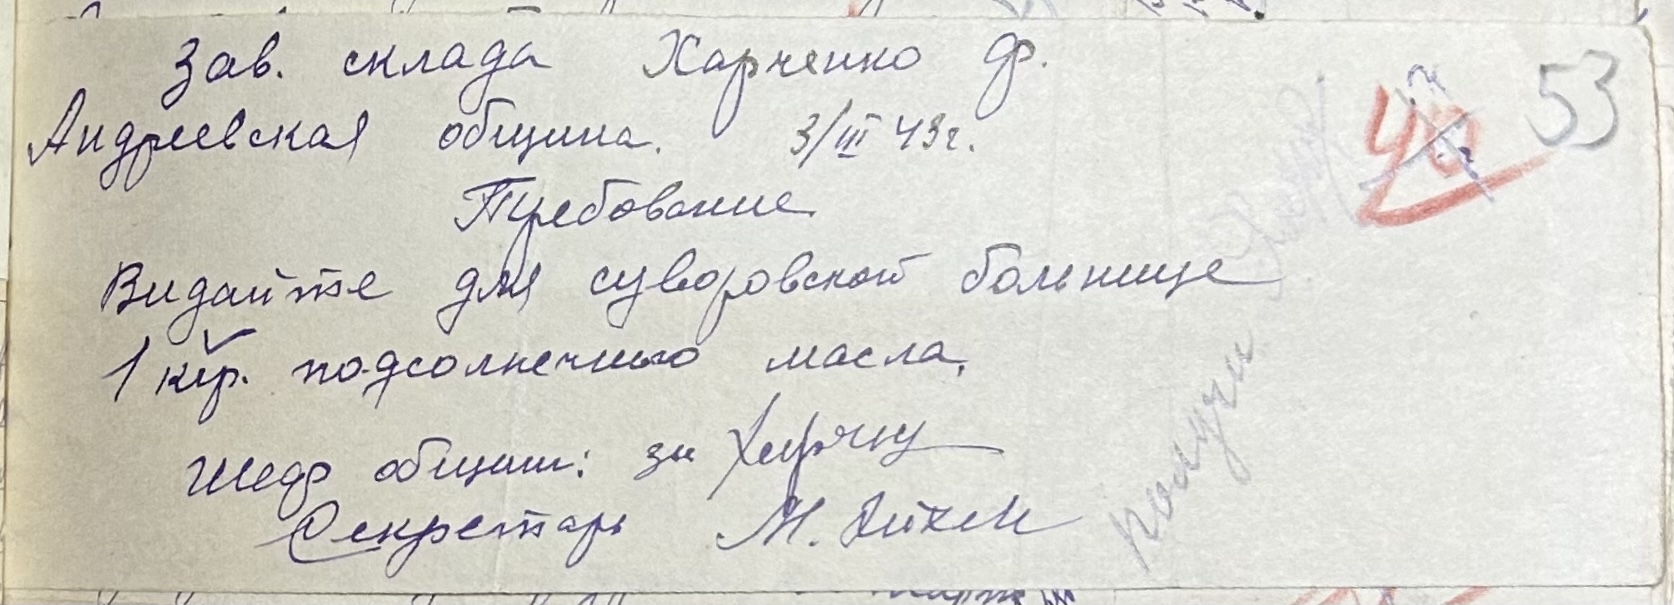 Зав. склада Харченко Ф.
Андреевская община. 3/III 43г.
Требование
Видайте для суворовской больнице
1 кгр. подсолнечного масла.
Шеф общин: за
Секретарь М.
53
40
Получи